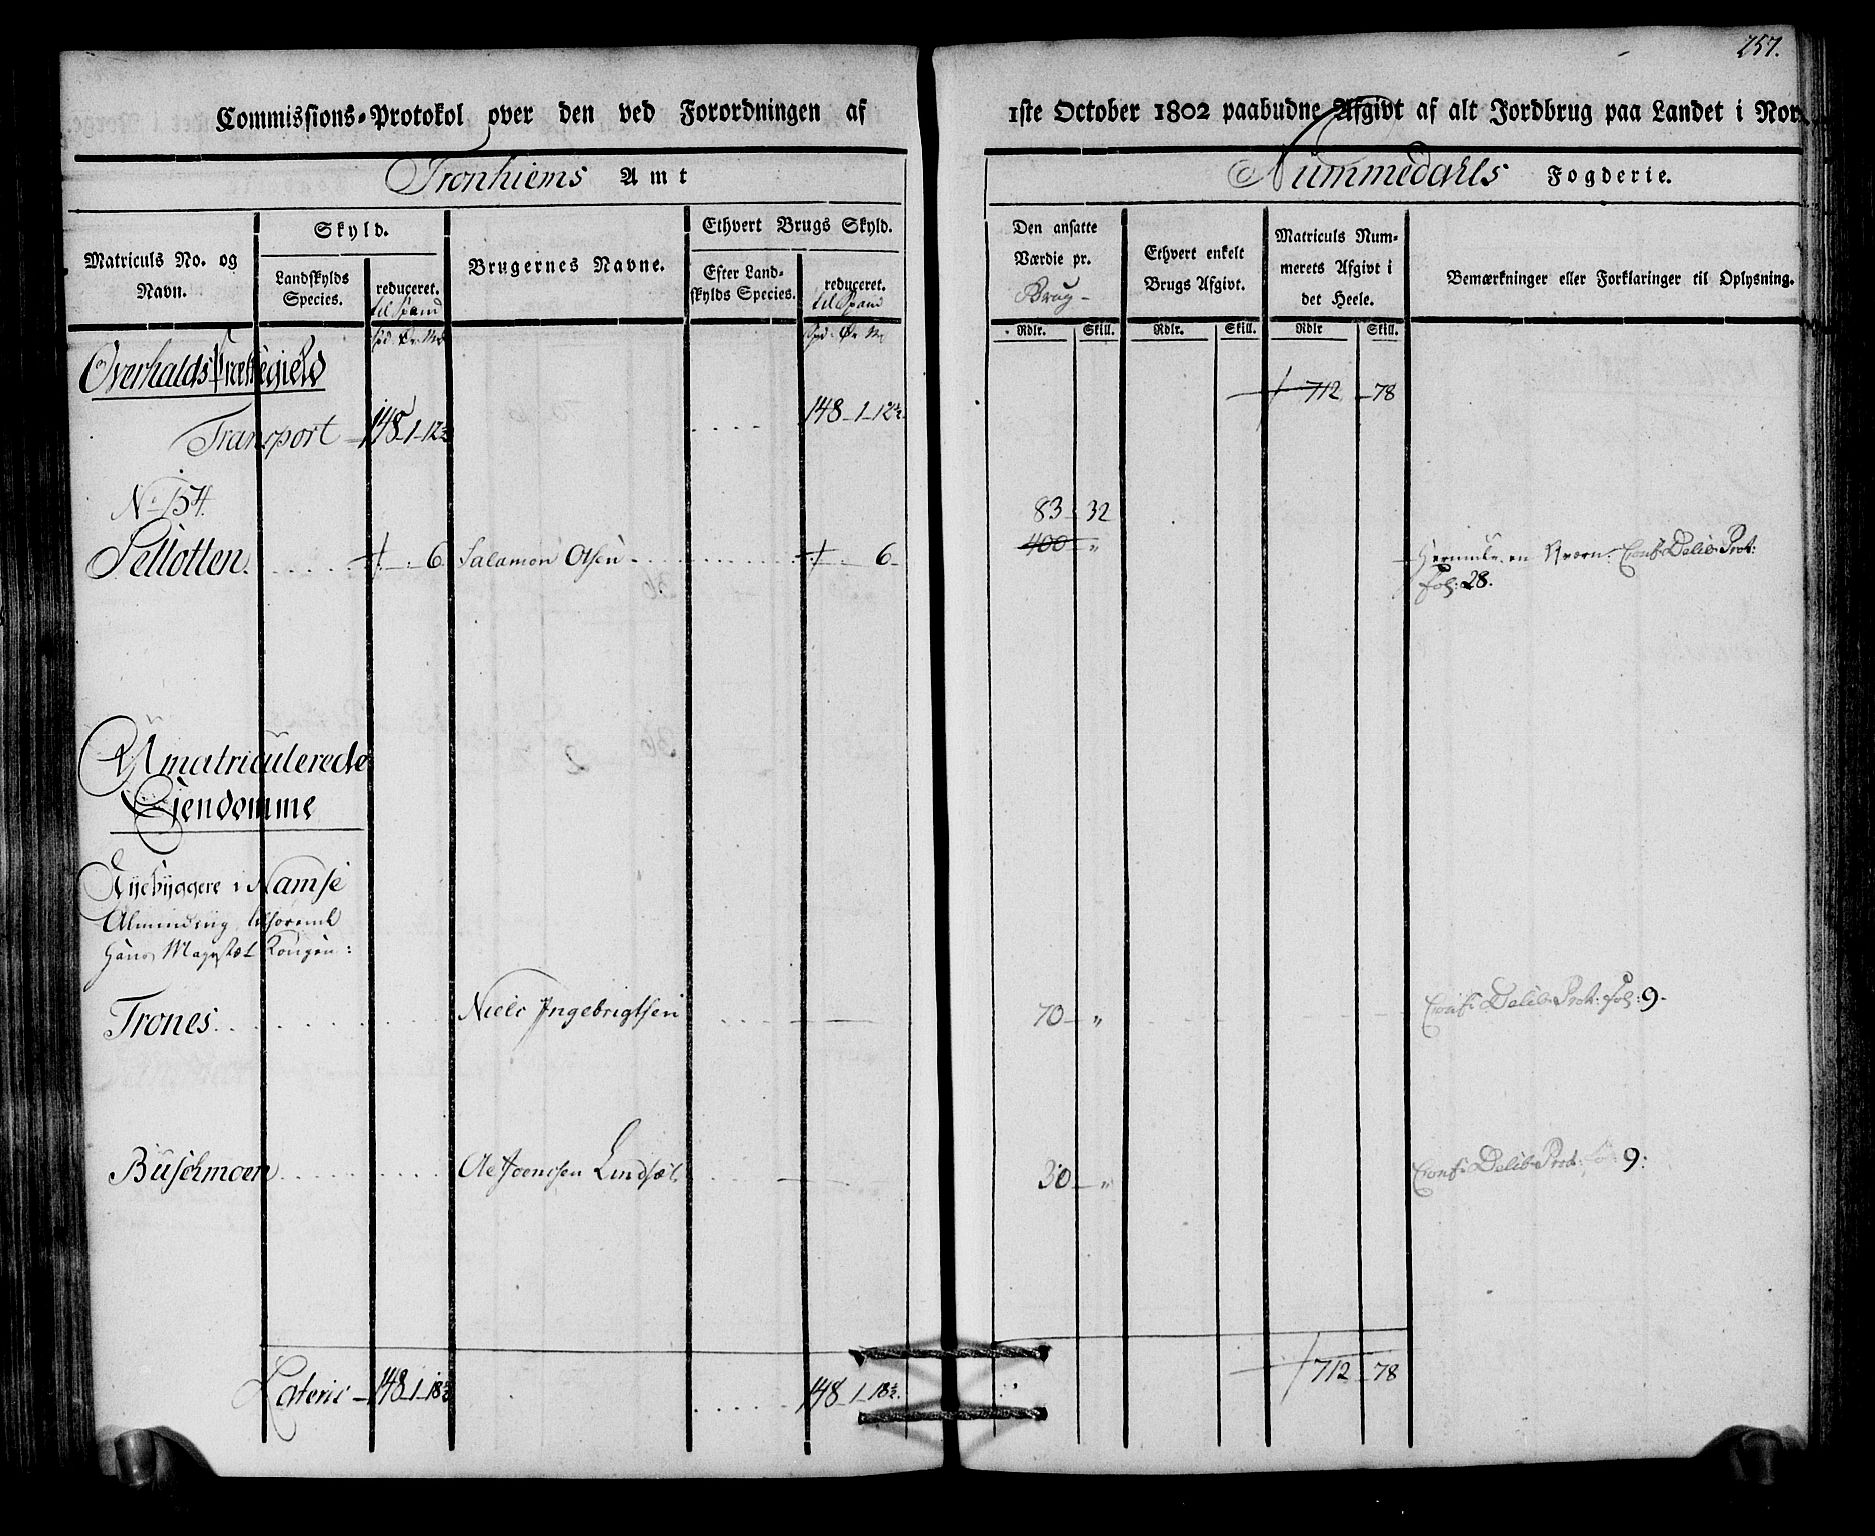 257.
Commissions-Protokol over den ved Forordningen af 1ste October 1802 paabudne Afgivt af alt Jordbrug paa Landet i Nor
Tronhiems Amt
Nummedahls Fogderie.
Matriculs No. og Navn.
Skyld.
Landskylds Species.
reduceret.
til Spand
Brugernes Navne.
Ethvert Brugs Skyld.
Efter Landskylds Species.
reduceret.
til Spand
Den ansatte Værdie pr.
Brug
Ethvert enkelt Brugs Afgivt.
Matriculs Nummerets Afgivt i det Heele.
Bemærkninger eller Forklaringer til Oplysning.
Rdlr. Skill. Rdlr. Skill. Rdlr Skill.
Overhalds Præstegield
Transport 148-1-12½ 148-1-12½ 712 78
No 154.
83 32
6 Salamon Olsen 6 400 "
en Kværn. Conf: Delib: Prot:
Fol: 28.
Umatriculerede
Eiendomme
Nyebyggere i Namse
Alminding tilhørende
Hans Majestæt Kongen:
Trones Niels Ingebrigtsen 70 " Conf: Delib: Prot: Fol: 9.
Buschmoen Ole Joensen 30 " Conf: Delib: Prot: Fol: 9:
Lateris 148-1-18½ 148-1-18½. 712 78